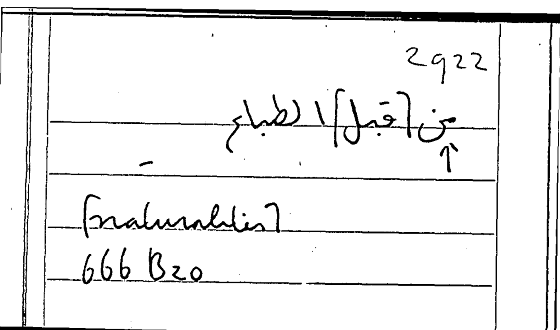 2922
من [قبل] الطباع
↑
[naturalites]
666 B20